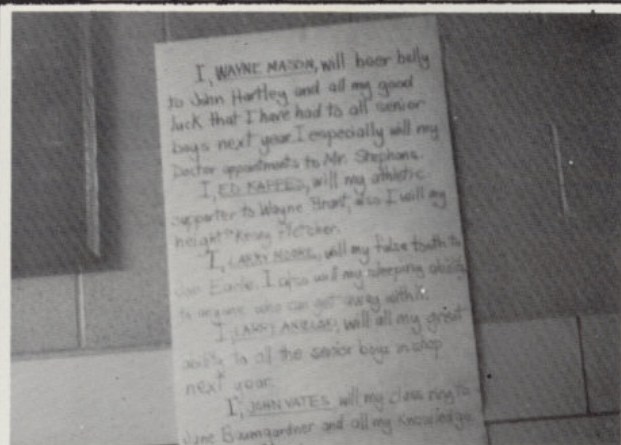 I, WAYNE MASON, will beer belly
to John Hartley and all my good
luck that I have had to all senior
boys next year. I especially will my
Doctor appointments to Mr. Stephans.
I, ED KAPPES, will my athletic
supporter to Wayne Brant, also I will my
height to Kenny Fletcher.
I, LARRY MOORE, will my false tooth to
Earle. I also will my sleeping ability
to anyone who can get away with it.
I, LARRY will all my great
ability to all the senior boys in shop
next year.
I, JOHN YATES will my class ring to
June Baumgardner and all my knowledge